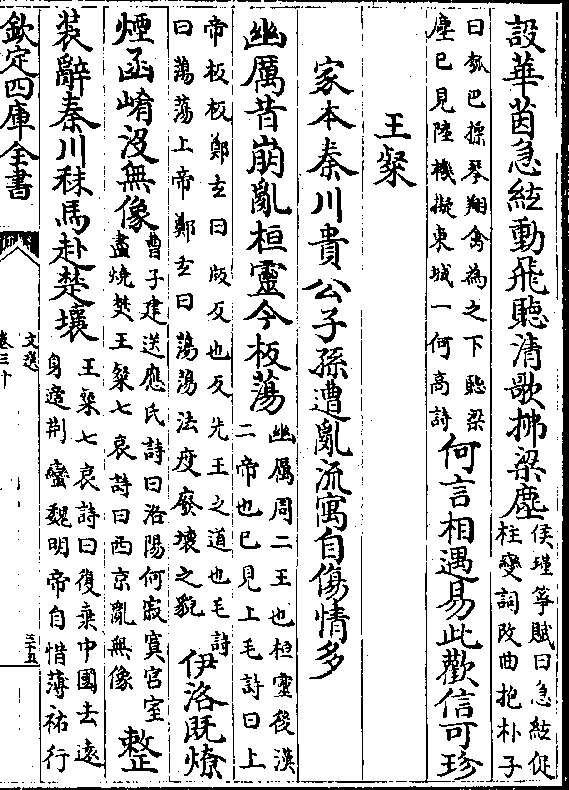 設華茵急絃動飛聽清歌拂梁塵
侯瑾箏賦曰急絃促
柱變詞改曲抱朴子
曰瓠巴操琴翔禽為之下聽梁
塵已見陸機擬東城一何高詩
何言相遇易此歡信可珍
王粲
家本秦川貴公子孫遭亂流寓自傷情多
幽厲昔崩亂桓靈今板蕩
幽厲周二王也桓靈後漢
二帝也已見上毛詩曰上
帝板板鄭玄曰版反也反先王之道也毛詩
曰蕩蕩上帝鄭玄曰蕩蕩法度廢壞之貌
伊洛既燎
煙函崤沒無像
曹子建送應氏詩曰洛陽何寂寞宫室
盡燒焚王粲七哀詩曰西京亂無像
整
装辭秦川秣馬赴楚壤
王粲七哀詩曰復棄中國去遠
身適荆蠻魏明帝自惜薄祐行
欽定四庫全書
文選
卷三十
三十五